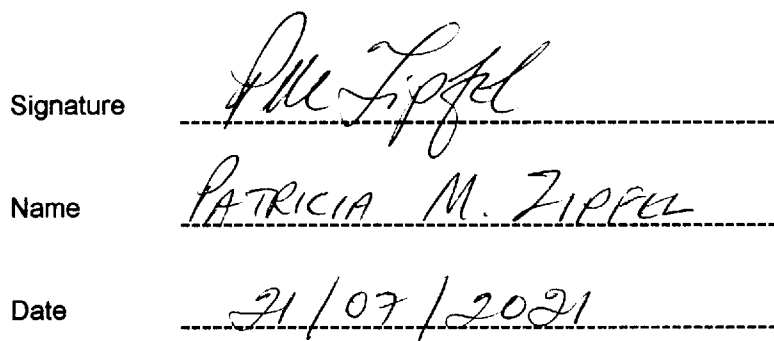 Signature PM Zipfel
Name PATRICIA M. ZIPFEL
Date 21/07/2021